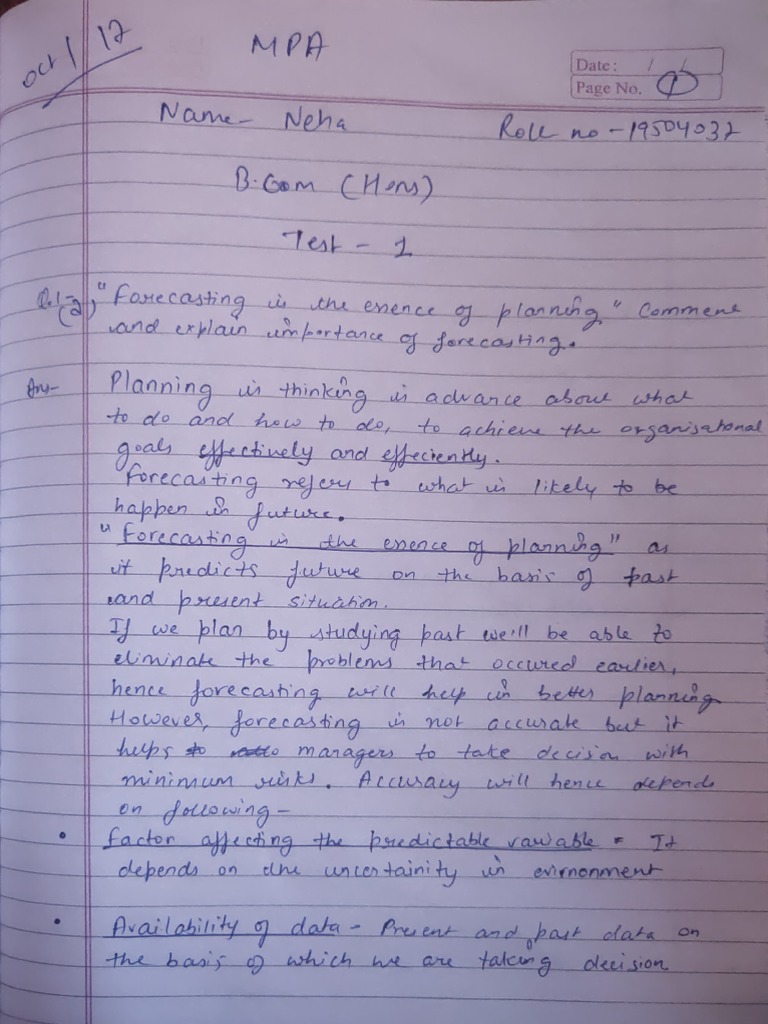 Oct / 17
MPA
Date: / /
Page No. 1
Name- Neha
Roll no - 19504037
B.Com (Hons)
Test - 1
Q.1- "Forecasting is the essence of planning" Comment
(a) and explain importance of forecasting.
Ans- Planning is thinking in advance about what
to do and how to do, to achieve the organisational
goals effectively and effeciently.
Forecasting refers to what is likely to be
happen in future.
"Forecasting is the essence of planning" as
it predicts future on the basis of past
and present situation.
If we plan by studying past we'll be able to
eliminate the problems that occured earlier,
hence forecasting will help in better planning
However, forecasting is not accurate but it
helps to managers to take decision with
minimum risks. Accuracy will hence depends
on following -
• Factor affecting the predictable variable - It
depends on the uncertainity in evironment
• Availability of data - Present and past data on
the basis of which we are taking decision